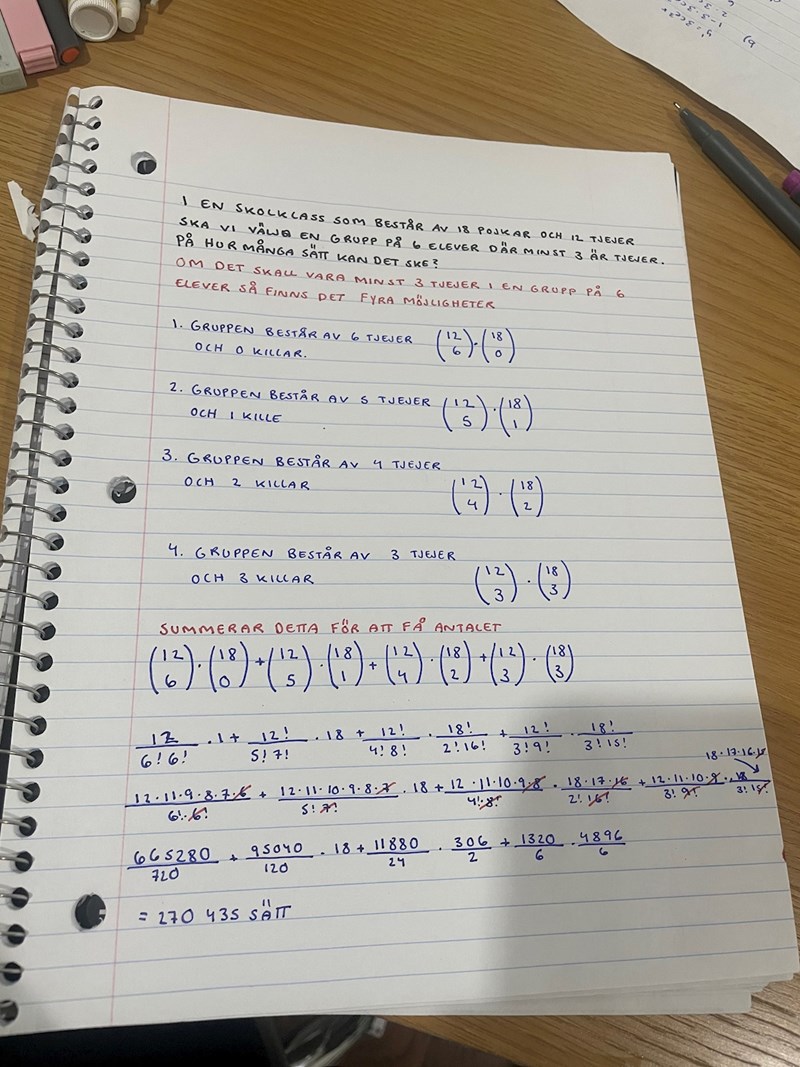 I EN SKOLKLASS SOM BESTÅR AV 18 POJKAR OCH 12 TJEJER
SKA VI VÄLJA EN GRUPP PÅ 6 ELEVER DÄR MINST 3 ÄR TJEJER.
PÅ HUR MÅNGA SÄTT KAN DET SKE?
OM DET SKALL VARA MINST 3 TJEJER I EN GRUPP PÅ 6
ELEVER SÅ FINNS DET FYRA MÖJLIGHETER
1. GRUPPEN BESTÅR AV 6 TJEJER (12 6)·(18 0)
OCH 0 KILLAR.
2. GRUPPEN BESTÅR AV 5 TJEJER (12 5)·(18 1)
OCH 1 KILLE
3. GRUPPEN BESTÅR AV 4 TJEJER
OCH 2 KILLAR (12 4)·(18 2)
4. GRUPPEN BESTÅR AV 3 TJEJER
OCH 3 KILLAR (12 3)·(18 3)
SUMMERAR DETTA FÖR ATT FÅ ANTALET
(12 6)·(18 0)+(12 5)·(18 1)+(12 4)·(18 2)+(12 3)·(18 3)
12/6!6! ·1+ 12!/5!7! ·18+ 12!/4!8! · 18!/2!16! + 12!/3!9! · 18!/3!15!
18·17·16·15
12·11·9·8·7·6/6!·6! + 12·11·10·9·8·7/5!7! ·18+ 12·11·10·9·8/4!·8! · 18·17·16/2!16! + 12·11·10·9/3!9! · 18/3!15!
665280/720 + 95040/120 ·18+ 11880/24 · 306/2 + 1320/6 · 4896/6
= 270 435 SÄTT
b)